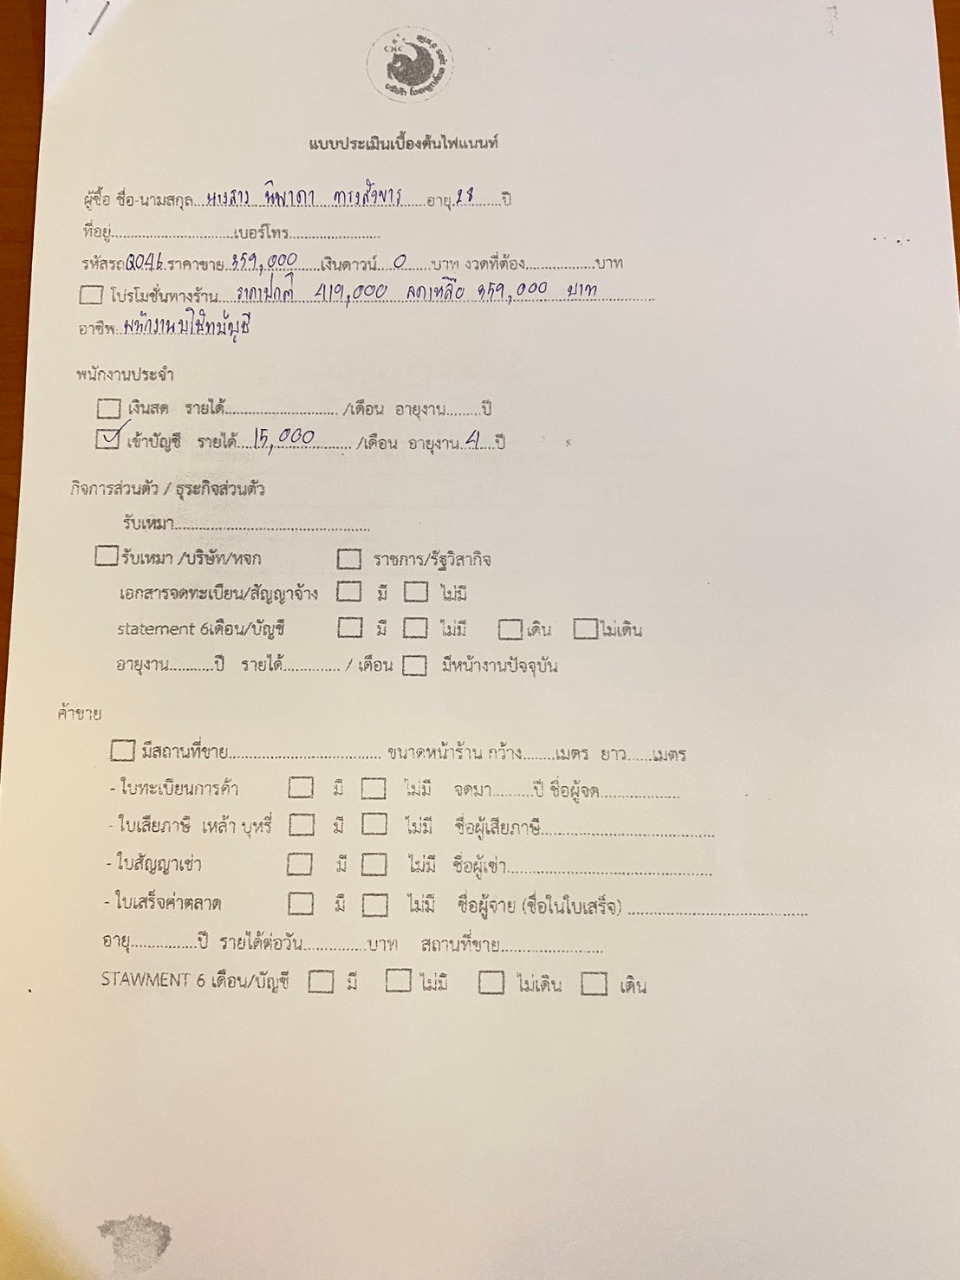 CNC
แบบประเมินเบื้องต้นไฟแนนท์
ผู้ซื้อ ชื่อ-นามสกุล...นางสาว ทิพาดา ทรงสังขาร......อายุ.28.......ปี
ที่อยู่..............................เบอร์โทร.......................
รหัสรถQ046.ราคาขาย.359,000......เงินดาวน์...0......บาท งวดที่ต้อง.................บาท
☐ โปรโมชั่นทางร้าน....ราคาปกติ 419,000 ลดเหลือ 359,000 บาท
อาชีพ.พนักงานบริษัทบัญชี
พนักงานประจำ
☐ เงินสด รายได้............................ /เดือน อายุงาน.........ปี
☑ เข้าบัญชี รายได้....15,000......... /เดือน อายุงาน.4...ปี
กิจการส่วนตัว / ธุระกิจส่วนตัว
รับเหมา................................................
☐ รับเหมา /บริษัท/หจก ☐ ราชการ/รัฐวิสากิจ
เอกสารจดทะเบียน/สัญญาจ้าง ☐ มี ☐ ไม่มี
statement 6เดือน/บัญชี ☐ มี ☐ ไม่มี ☐ เดิน ☐ ไม่เดิน
อายุงาน...........ปี รายได้.............. / เดือน ☐ มีหน้างานปัจจุบัน
ค้าขาย
☐ มีสถานที่ขาย...................................... ขนาดหน้าร้าน กว้าง.......เมตร ยาว......เมตร
- ใบทะเบียนการค้า ☐ มี ☐ ไม่มี จดมา..........ปี ชื่อผู้จด....................
- ใบเสียภาษี เหล้า บุหรี่ ☐ มี ☐ ไม่มี ชื่อผู้เสียภาษี...........................................
- ใบสัญญาเช่า ☐ มี ☐ ไม่มี ชื่อผู้เช่า..................................................
- ใบเสร็จค่าตลาด ☐ มี ☐ ไม่มี ชื่อผู้จาย (ชื่อในใบเสร็จ) .............................................
อายุ................ปี รายได้ต่อวัน................บาท สถานที่ขาย.........................
STAWMENT 6 เดือน/บัญชี ☐ มี ☐ ไม่มิ ☐ ไม่เดิน ☐ เดิน